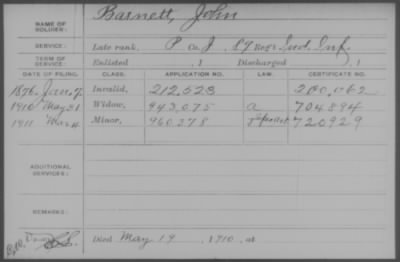 Barnett, John
NAME OF SOLDIER:
SERVICE: Late rank, P Co. J, 89 Reg't Ind. Inf.
TERM OF SERVICE: Enlisted , 1 Discharged , 1
DATE OF FILING. CLASS. APPLICATION NO. LAW. CERTIFICATE NO.
1876 Jan. 7. Invalid, 212.523 200.062
1910 May 31 Widow, 943,075 a 704894
1911 Minor, 960378 720929
ADDITIONAL SERVICES:
REMARKS:
Died May 19, 1910, at